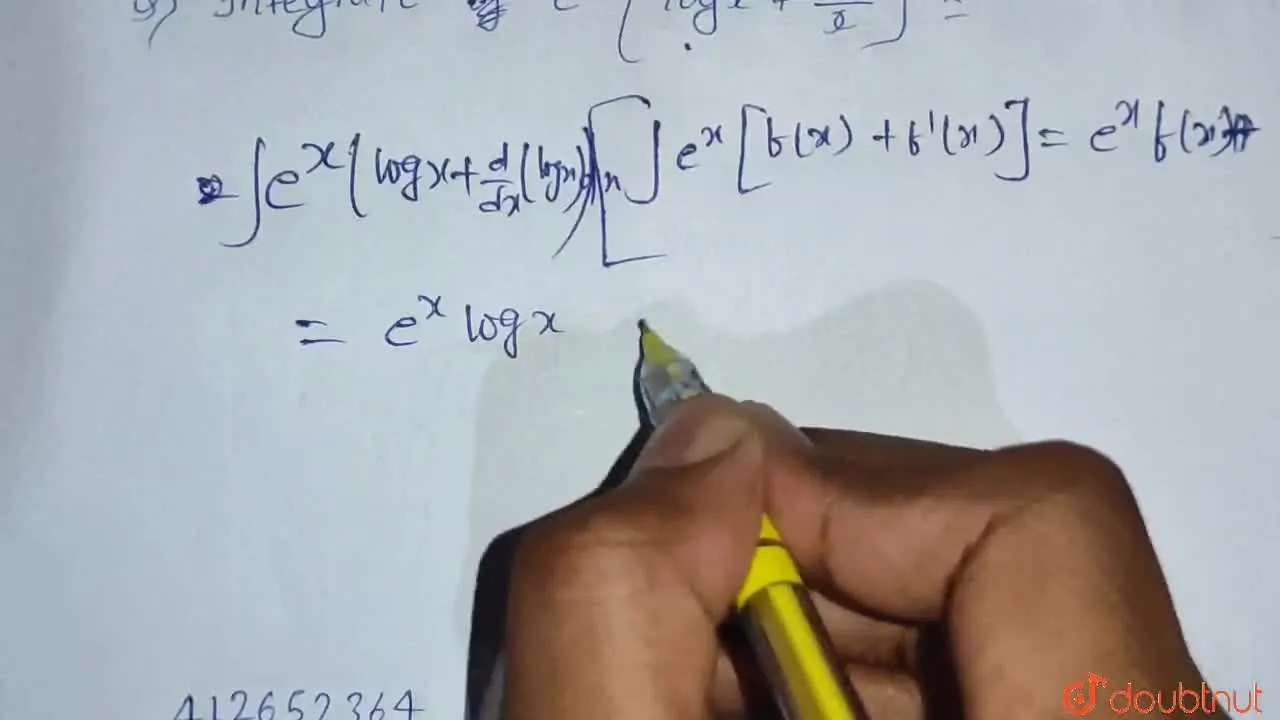 Integrate e (log x + 1/x)
∫ e^x (log x + d/dx (log x)) [∫ e^x [f(x) + f'(x)] = e^x f(x)
= e^x log x
412652364
doubtnut